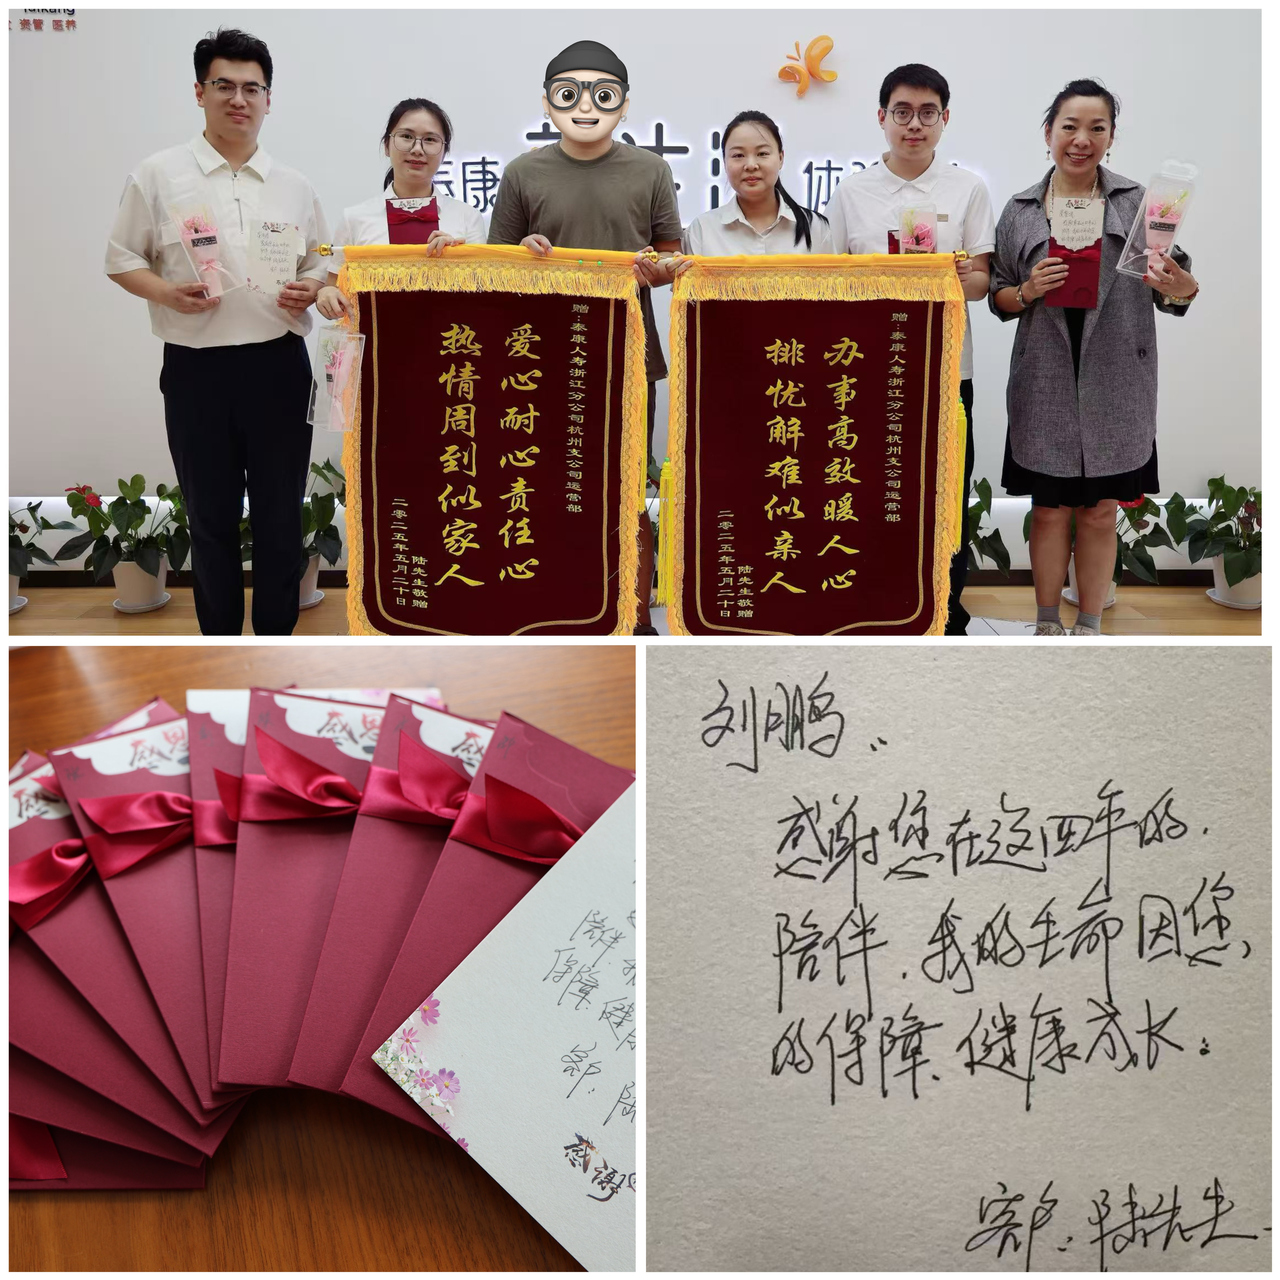 资管 医养
泰康
体
赠：泰康人寿浙江分公司杭州支公司运营部
爱心耐心责任心
热情周到似家人
陆先生敬赠
二零二五年五月二十日
赠：泰康人寿浙江分公司杭州支公司运营部
办事高效暖人心
排忧解难似亲人
陆先生敬赠
二零二五年五月二十日
感恩
感恩
陪伴.
保障.健
客户：陆
感谢
刘鹏：
感谢您在这四年的
陪伴.我的生命因您
的保障、健康成长。
客户：陆先生